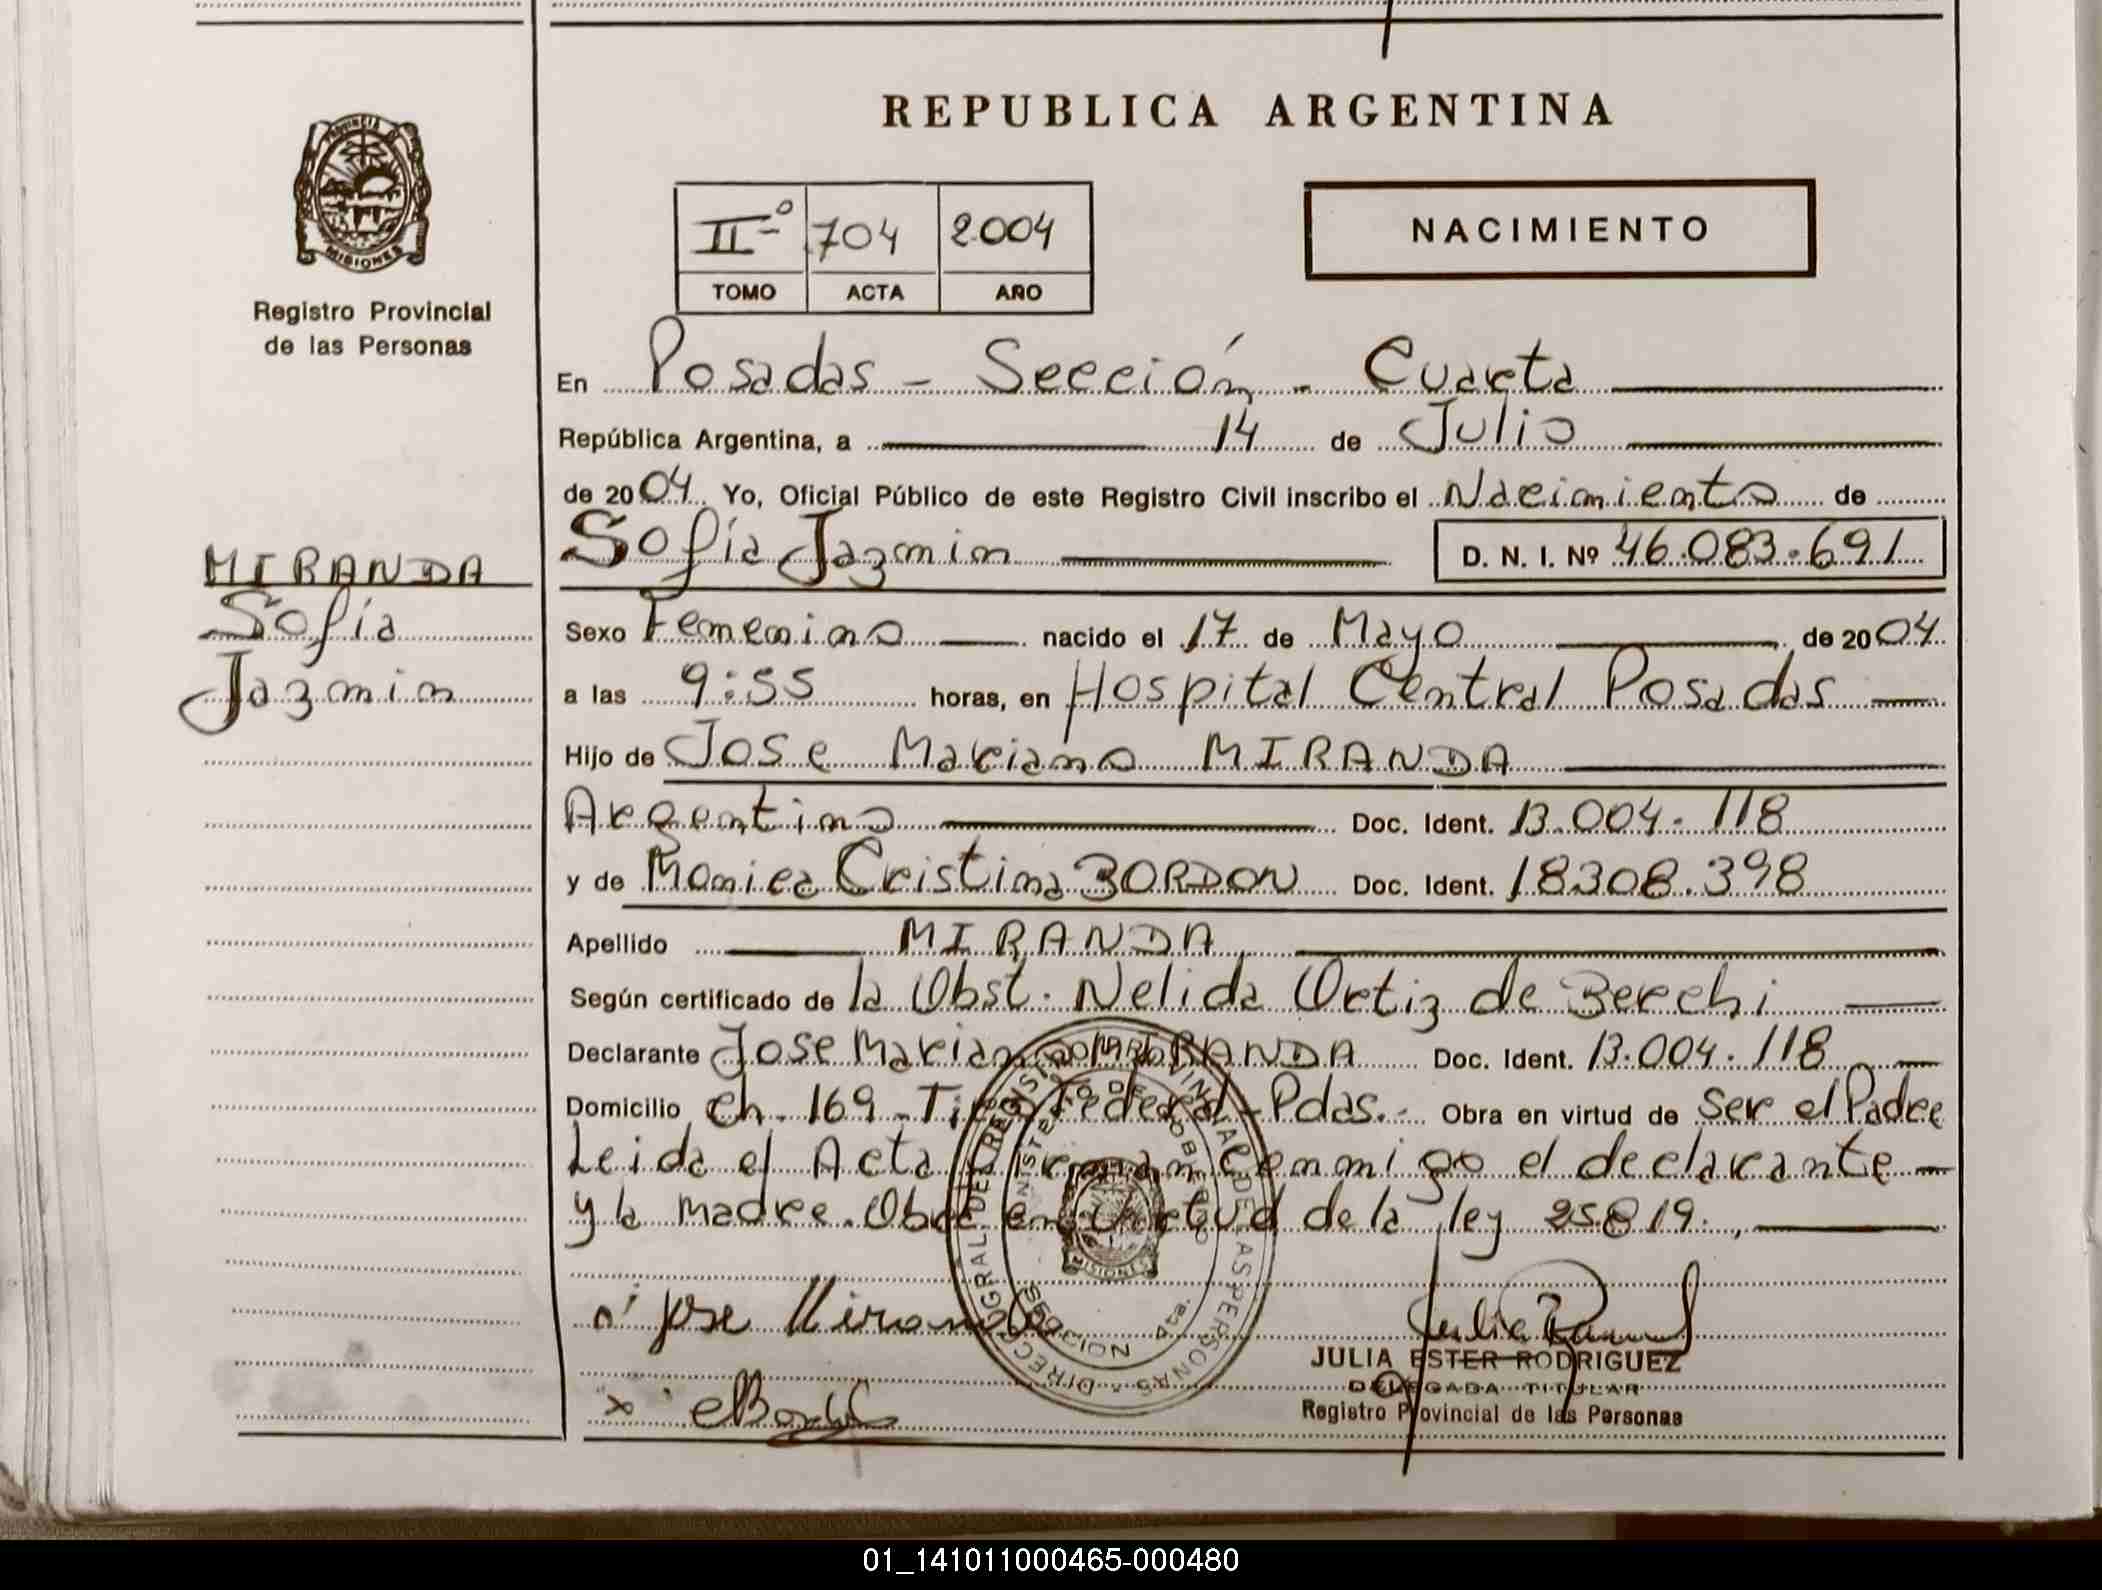 REPUBLICA ARGENTINA
PROVINCIA D MISIONES
Registro Provincial
de las Personas
IIº 704 2004
TOMO ACTA AÑO
NACIMIENTO
En Posadas - Sección - Cuarta
República Argentina, a 14 de Julio
de 2004 Yo, Oficial Público de este Registro Civil inscribo el Nacimiento de
Sofía Jazmin D. N. I. Nº 46.083.691
MIRANDA
Sofía
Jazmin
Sexo Femenino nacido el 17 de Mayo de 2004
a las 9:55 horas, en Hospital Central Posadas
Hijo de Jose Mariano MIRANDA
Argentino Doc. Ident. 13.004.118
y de Monica Cristina BORDON Doc. Ident. 18308.398
Apellido MIRANDA
Según certificado de la Obst. Nelida Ortiz de Berchi
Declarante Jose Mariano MIRANDA Doc. Ident. 13.004.118
Domicilio ch. 169 - Tiro Federal - Pdas. - Obra en virtud de Ser el Padre
Leida el Acta firman conmigo el declarante
y la madre. Obra en virtud de la ley 25.819.
DIRECC. GRAL. DEL REGISTRO PROVINCIAL DE LAS PERSONAS
MINISTERIO DE GOBIERNO
MISIONES
Jose Miranda
Julia R
JULIA ESTER RODRIGUEZ
DELEGADA TITULAR
Registro Provincial de las Personas
x
01_141011000465-000480